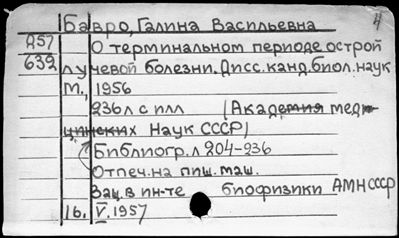 Бавро, Галина Васильевна
Д57 О терминальном периоде острой
632 лучевой болезни. Дисс. канд. биол. наук
М., 1956
236 л с илл (Академия меди-
цинских Наук СССР)
Библиогр. л 204-236
Отпеч. на пиш. маш.
Защ. в ин-те биофизики АМН СССР
16. V. 1957